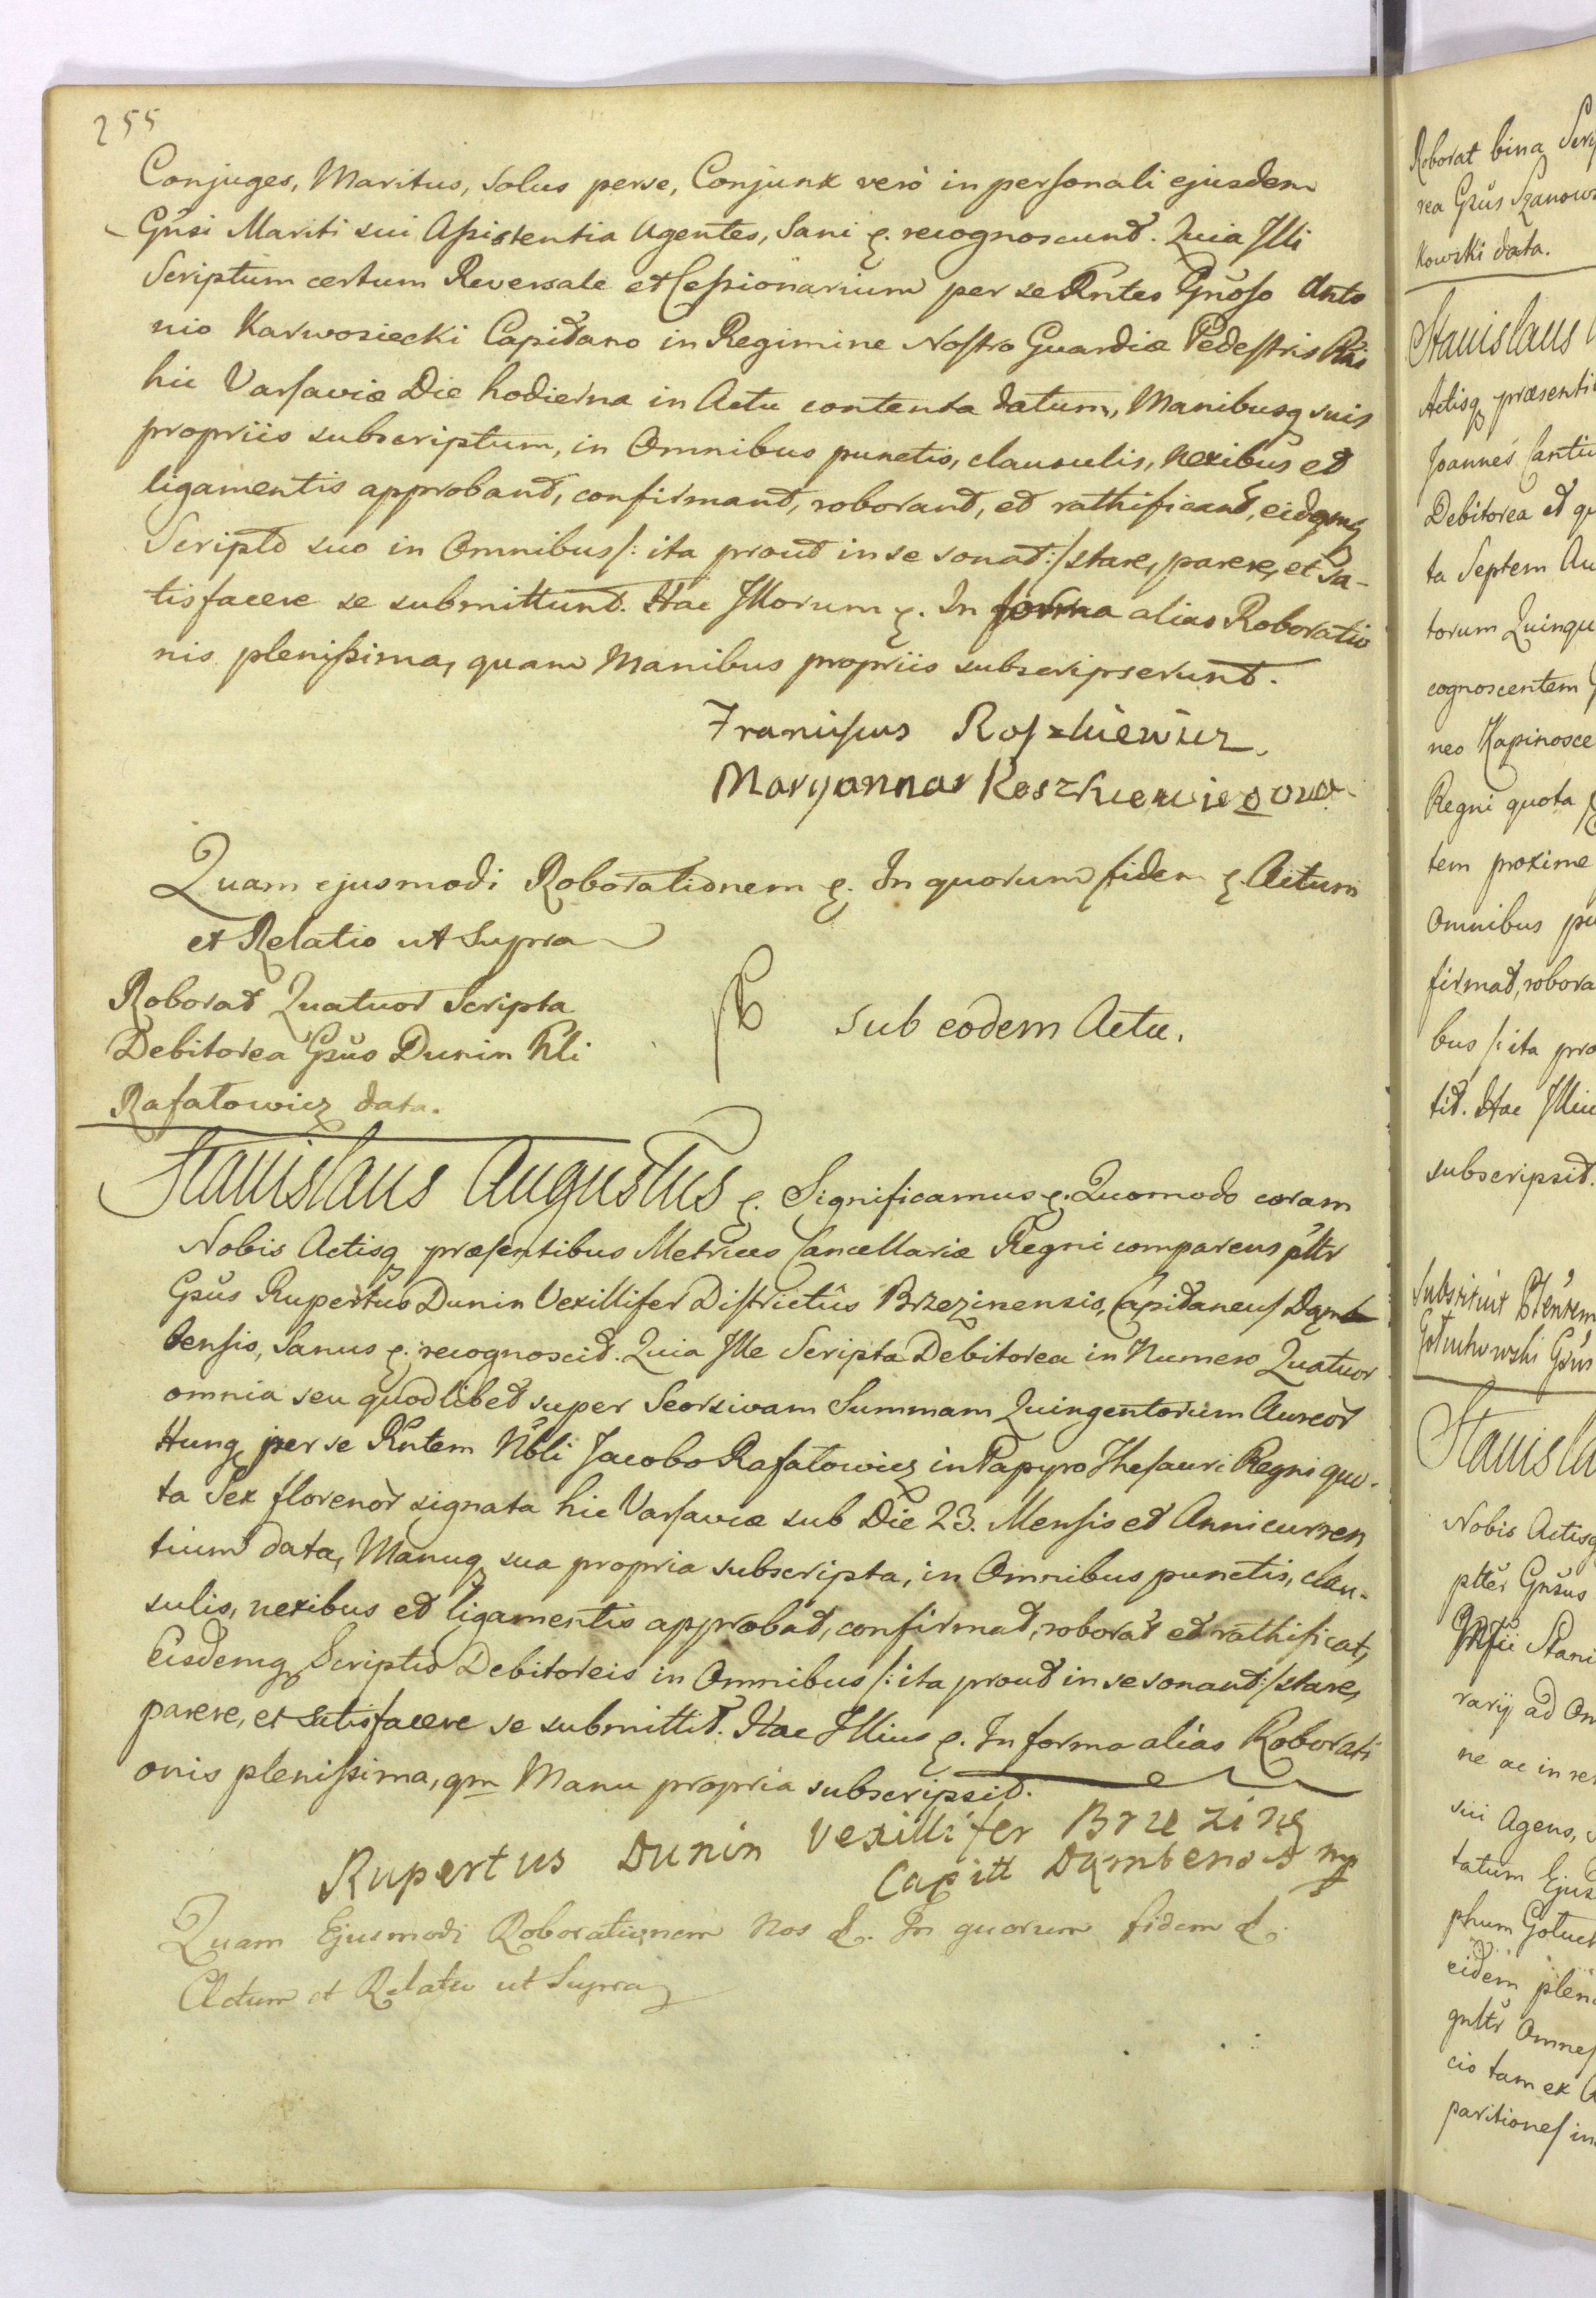 255
Conjuges, Maritus, solus per se, Conjunx verò in personali ejusdem
Gn̄si Mariti sui Assistentia Agentes, Sani &. recognoscunt. Quia Illi
Scriptum certum Reversale et Cessionarium per se Rntes Gnōso Anto
nio Karwosiecki Capitano in Regimine Nostro Guardiæ Pedestris Rnis
hic Varsaviæ Die hodierna in Actu contenta datum, Manibusq suis
propriis subscriptum, in Omnibus punctis, clausulis, nexibus et
ligamentis approbant, confirmant, roborant, et rathificant, eidemq
Scripto suo in Omnibus /: ita prout in se sonat :/ stare, parere, et sa-
tisfacere se submittunt. Hac Illorum &. In forma alias Roboratio
nis plenissima, quam Manibus propriis subscripserunt.
Franciscus Roszkiewicz
Maryanna Roszkiewiczowa
Quam ejusmodi Roborationem &. In quorum fidem &. Actum
et Relatio ut Supra
Roborat Quatuor Scripta
Debitorea Gsūs Dunin Nli
Rafałowicz data.
Sub eodem Actu.
Stanislaus Augustus &. Significamus &. Quomodo coram
Nobis Actisq præsentibus Metrices Cancellariæ Regni comparens pltr
Gsūs Rupertus Dunin Vexillifer Districtûs Brzezinensis, Capitaneus Dąm
bensis, Sanus &. recognoscit. Quia Ille Scripta Debitorea in Numero Quatuor
omnia seu quodlibet super Seorsivam Summam Quingentorum Aureor
Hung per se Rntem Nbli Jacobo Rafałowicz in Papyro Thesauri Regni quo-
ta Sex florenor signata hic Varsaviæ sub Die 23. Mensis et Anni curren
tium data, Manuq sua propria subscripta, in Omnibus punctis, clau-
sulis, nexibus et ligamentis approbat, confirmat, roborat et rathificat,
Eisdemq Scriptis Debitoreis in Omnibus /: ita prout in se sonant :/ stare,
parere, et satisfacere se submittit. Hac Illius &. In forma alias Roborati
onis plenissima, qm Manu propria subscripsit.
Rupertus Dunin Vexillifer Brzezing
Capitt Dąmbensis mp
Quam Ejusmodi Roborationem Nos &. In quorum fidem &.
Actum et Relatio ut Supra
Roborat bina
rea Gsūs Szanows
kowski data.
Stanislaus
Actisq præsenti
Joannes Cantiu
Debitorea et qu
ta Septem Au
torum Quinqu
cognoscentem
neo Kapinosce
Regni quota
tem proxime
Omnibus pu
firmat, robora
bus /: ita pro
tit. Hac Illiu
subscripsit.
Substituit Plentem
Gołuchowski Gsūs
Stanisla
Nobis Actisq
plter Gnsus
Stani
rarij ad Om
ne ac in re
sui Agens,
tatum Ejus
phum Gołuch
eidem plen
gnltr Omnes
cio tam ex
paritiones in